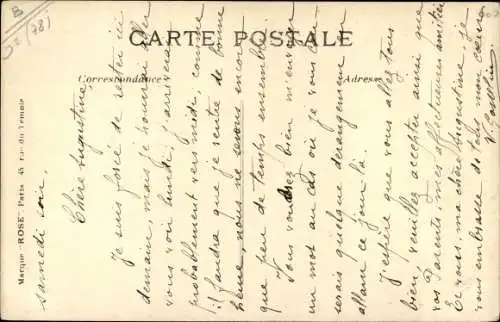 B
2 (78)
CARTE POSTALE
Correspondance
Adresse
Marque "ROSE" Paris 45 rue du Temple
samedi soir,
Chère Augustine,
Je suis forcée de rester ici
demain, mais je pourrai aller
vous voir lundi, j'arriverai
probablement vers midi, comme
il faudra que je rentre de bonne
heure nous ne serons encore
que peu de temps ensemble.
Vous voudrez bien m'envoyer
un mot au cas où je vous
serais quelque dérangement en
allant ce jour là.
J'espère que vous allez tous
bien, veuillez accepter ainsi que
vos Parents mes affectueuses amitiés
Et vous, ma chère Augustine, je
vous embrasse de tout mon cœur